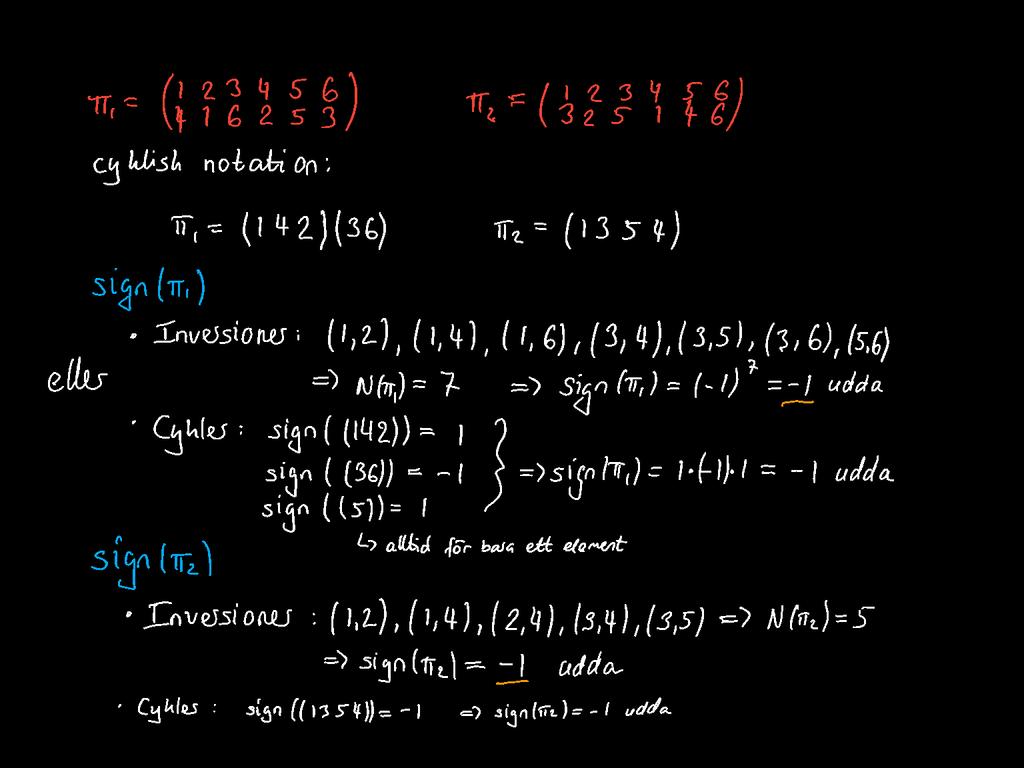 π₁ = (1 2 3 4 5 6 π₂ = (1 2 3 4 5 6
4 1 6 2 5 3) 3 2 5 1 4 6)
cyklish notation:
π₁ = (1 4 2)(3 6) π₂ = (1 3 5 4)
sign(π₁)
• Inversiones: (1,2), (1,4), (1,6), (3,4), (3,5), (3,6), (5,6)
eller => N(π₁) = 7 => sign(π₁) = (-1)⁷ = -1 udda
• Cykles: sign((142)) = 1
sign((36)) = -1 } => sign(π₁) = 1·(-1)·1 = -1 udda
sign((5)) = 1
↳ alltid för bara ett element
sign(π₂)
• Inversiones: (1,2), (1,4), (2,4), (3,4), (3,5) => N(π₂) = 5
=> sign(π₂) = -1 udda
• Cykles: sign((1354)) = -1 => sign(π₂) = -1 udda